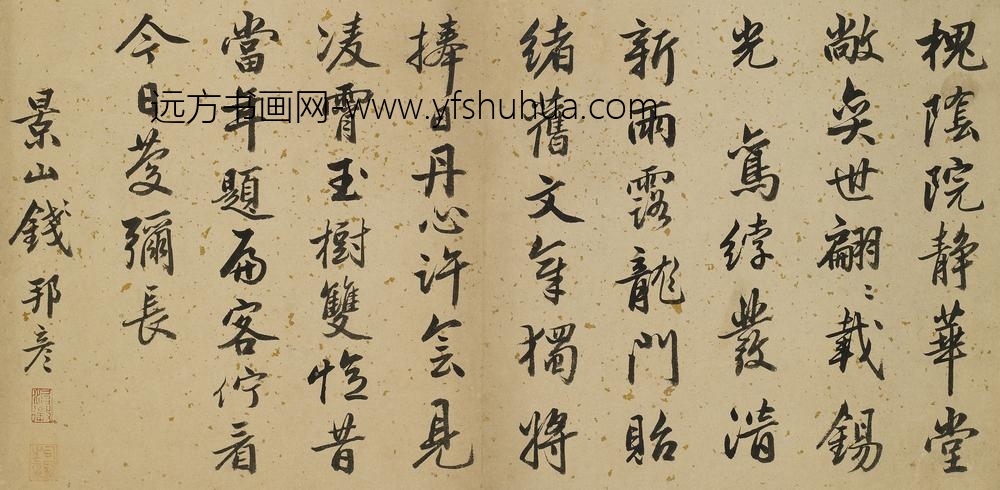 槐陰院静華堂
敞奕世翩〻載錫
光鸞綍發清
新雨露龍門貽
緒舊文章獨將
捧日丹心許會見
凌霄玉樹雙憶昔
當年題扁客佇看
今日慶彌長
景山錢邦彥
远方书画网-www.yfshuhua.com